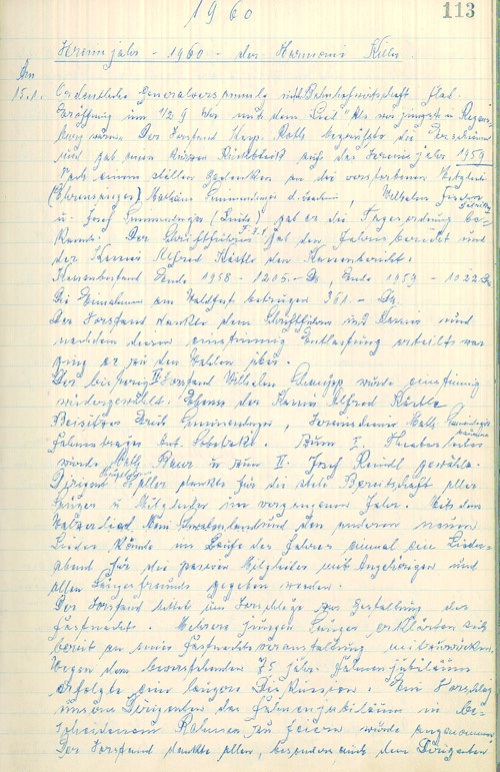 1960
113
Vereinsjahr - 1960 - der Harmonie
Am
15.1. Ordentliche Generalversammlung in der Bahnhofwirtschaft statt.
Eröffnung um 1/2 9 Uhr mit dem Lied "Als wir jüngst in Regens-
burg waren. Der Vorstand Roth begrüßte die Erschienenen
und gab einen kurzen Rückblick auf das Vereinsjahr 1959
Nach einem stillen Gedenken an die verstorbenen Mitglieder
(Ehrensänger) Mathäus Emmendinger, Wilhelm
u. Josef Emmendinger gab er die Tagesordnung be-
kannt. Der Schriftführer gab den Jahresbericht und
der Kassier Alfred den Kassenbericht.
Kassenbestand Ende 1958 - 1205.- DM, Ende 1959 - 1022 DM
Die Einnahmen am Waldfest betrugen 361.- DM.
Der Vorstand dankte dem Schriftführer und Kassier und
nachdem denen einstimmig Entlastung erteilt war
ging er zu den Wahlen über.
Der bisherige II Vorstand Wilhelm wurde einstimmig
wiedergewählt. Ebenso der Kassier Alfred
Beisitzer Emmendinger, Vereinsdiener
Fahnenträger Ant. Zum I. Theaterleiter
wurde Math. u. zum II. Josef gewählt.
Dirigent dankte für die stete Bereitschaft aller
Sänger u. Mitglieder im vergangenen Jahr. Mit dem
Walzerlied, Mein Schwabenland und den anderen neuen
Lieder könnte im Laufe des Jahres einmal ein Lieder-
abend für die passiven Mitglieder mit Angehörigen und
allen Sängerfreunde gegeben werden.
Der Vorstand bittet um Vorschläge zur Gestaltung der
Fastnacht. Mehrere jüngere Sänger erklärten sich
bereit an einer Fastnachtsveranstaltung mitzuwirken.
Wegen dem bevorstehenden 75 jähr. Fahnenjubiläum
erfolgte eine längere Diskussion. Ein Vorschlag
unseres Dirigenten das Fahnenjubiläum in be-
scheidenem Rahmen zu feiern wurde angenommen
Der Vorstand dankte allen, besonders auch dem Dirigenten